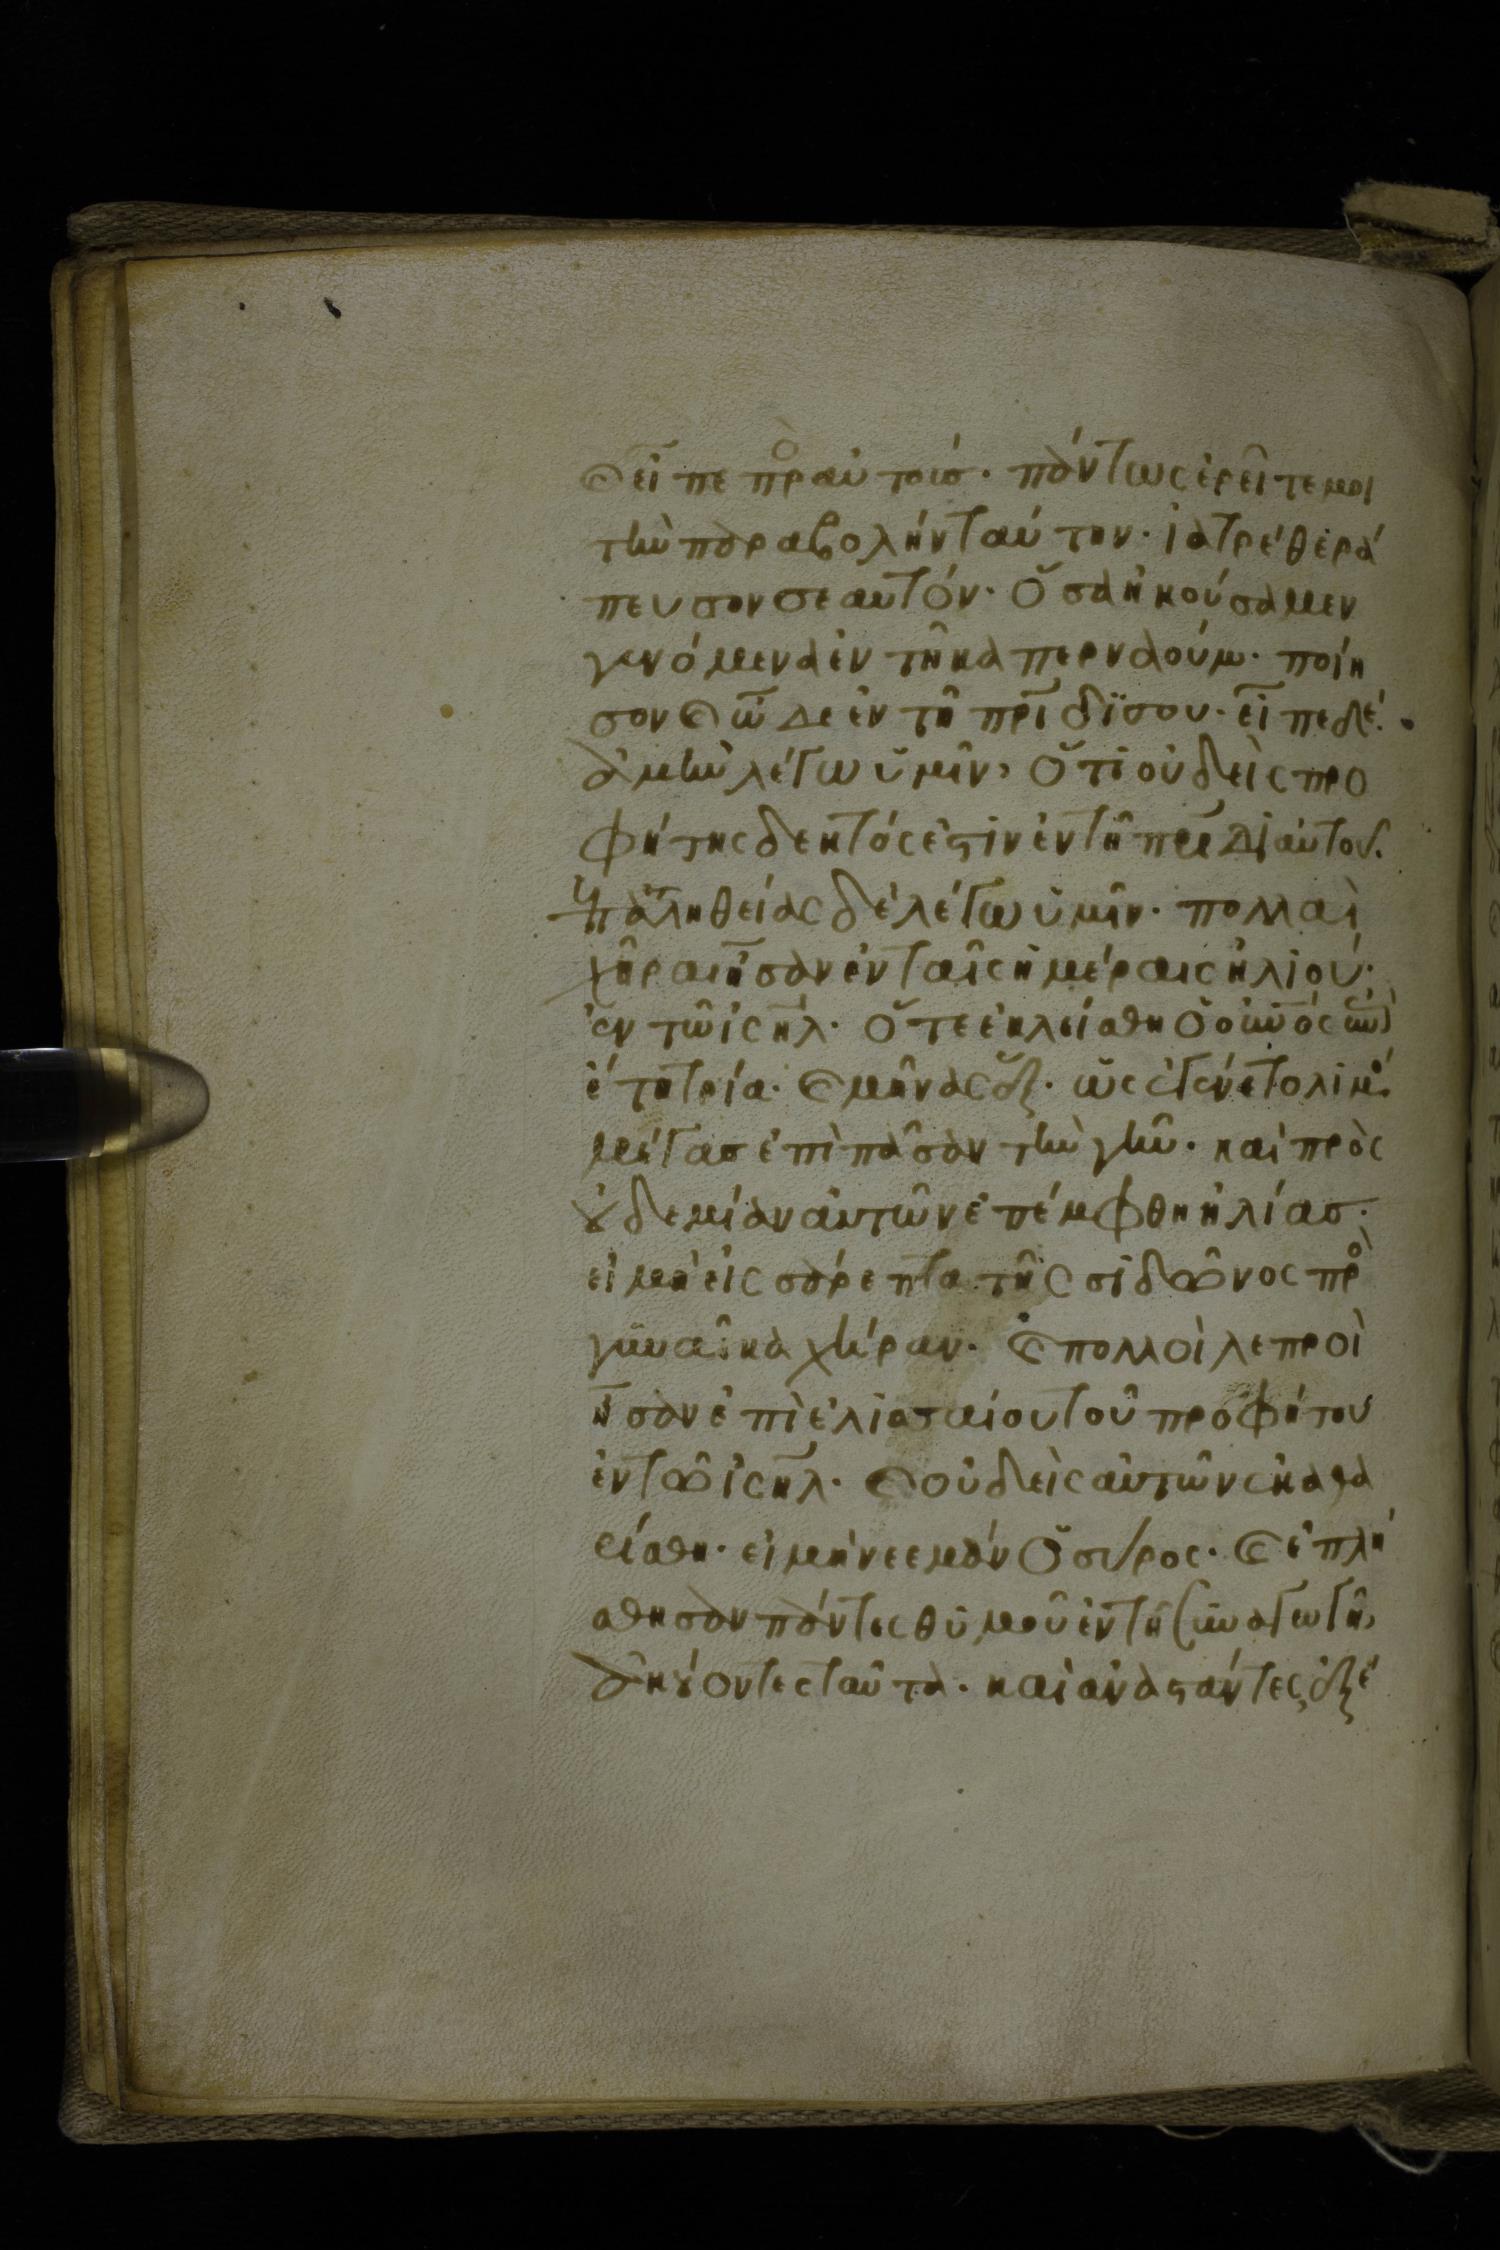 ϗ εἶπε πρὸς αὐτοίσ· πάντως ἐρεῖτε μοι
τὴν παραβολὴν ταύτην· ἰατρέ θερά
πευσον σεαυτόν· ὅσα ἠκούσαμεν
γενόμενα ἐν τῆ καπερναούμ· ποίη
σον ϗ ὧδε ἐν τῆ πρῑδῒ σου· εἶπε δέ·
ἀμὴν λέγω ὑμῖν, ὅτι οὐδεὶς προ
φήτης δεκτός ἐςιν ἐν τῆ πρῑδι αὐτοῦ.
ἐπαληθείας δὲ λέγω ὑμῖν· πολλαὶ
χῆραι ἦσαν ἐν ταῖς ἡμέραις ἡλιού·
ἐν τῶ ἰσηλ· ὅτε ἐκλείσθη ὁ οὐνὸς ἐπὶ
ἔτη τρία· ϗ μῆνας ἕξ· ὡς ἐγένετο λιμὸ
μέγασ ἐπὶ πᾶσαν τὴν γῆν· καὶ πρὸς
ȣ̓δεμίαν αὐτῶν ἐπέμφθη ἠλίασ·
εἰ μὴ εἰς σάρεπτα τῆς σιδῶνος πρὸς
γυναῖκα χήραν· ϗ πολλοὶ λεπροὶ
ἦσαν ἐπὶ ἐλισσαίου τοῦ προφήτου
ἐν τῶ ἰσηλ· ϗ οὐδεὶς αὐτῶν ἐκαθα
ρίσθη· εἰ μὴ νεεμὰν ὁ σύρος· ϗ ἐπλή
σθησαν πάντες θυμοῦ ἐν τῆ συναγωγῆ,
ἀκȣ́οντες ταῦτα· καὶ ἀναςάντες, ἐξέ